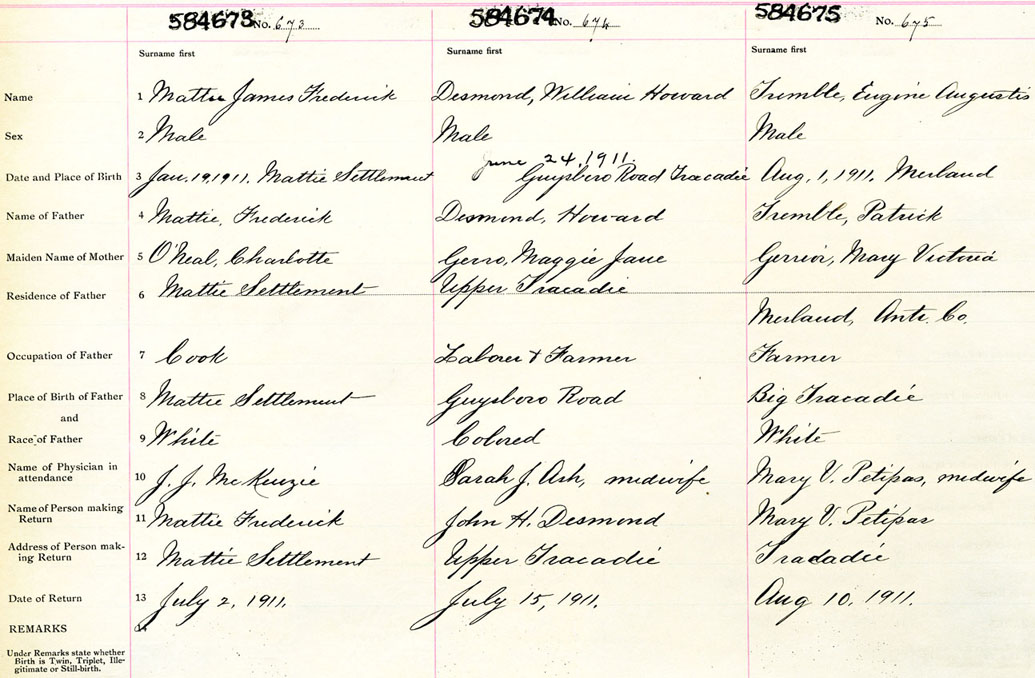 584673 No. 673 584674 No. 674 584675 No. 675
Surname first Surname first Surname first
Name 1 Mattie James Frederick Desmond, William Howard Tremble, Eugine Augustis
Sex 2 Male Male Male
June 24, 1911.
Date and Place of Birth 3 Jan. 19, 1911. Mattie Settlement Guysboro Road Tracadie Aug. 1, 1911. Merland
Name of Father 4 Mattie, Frederick Desmond, Howard Tremble, Patrick
Maiden Name of Mother 5 O'Neal, Charlotte Gerro, Maggie Jane Gerrior, Mary Victoria
Residence of Father 6 Mattie Settlement Upper Tracadie
Merland, Ant. Co.
Occupation of Father 7 Cook Laborer & Farmer Farmer
Place of Birth of Father 8 Mattie Settlement Guysboro Road Big Tracadie
and
Race of Father 9 White Colored White
Name of Physician in
attendance 10 J. J. McKenzie Sarah J. Ash, midwife Mary V. Petipas, midwife
Name of Person making
Return 11 Mattie Frederick John H. Desmond Mary V. Petipas
Address of Person mak-
ing Return 12 Mattie Settlement Upper Tracadie Tracadie
Date of Return 13 July 2, 1911. July 15, 1911. Aug 10, 1911.
REMARKS 14
Under Remarks state whether
Birth is Twin, Triplet, Ille-
gitimate or Still-birth.